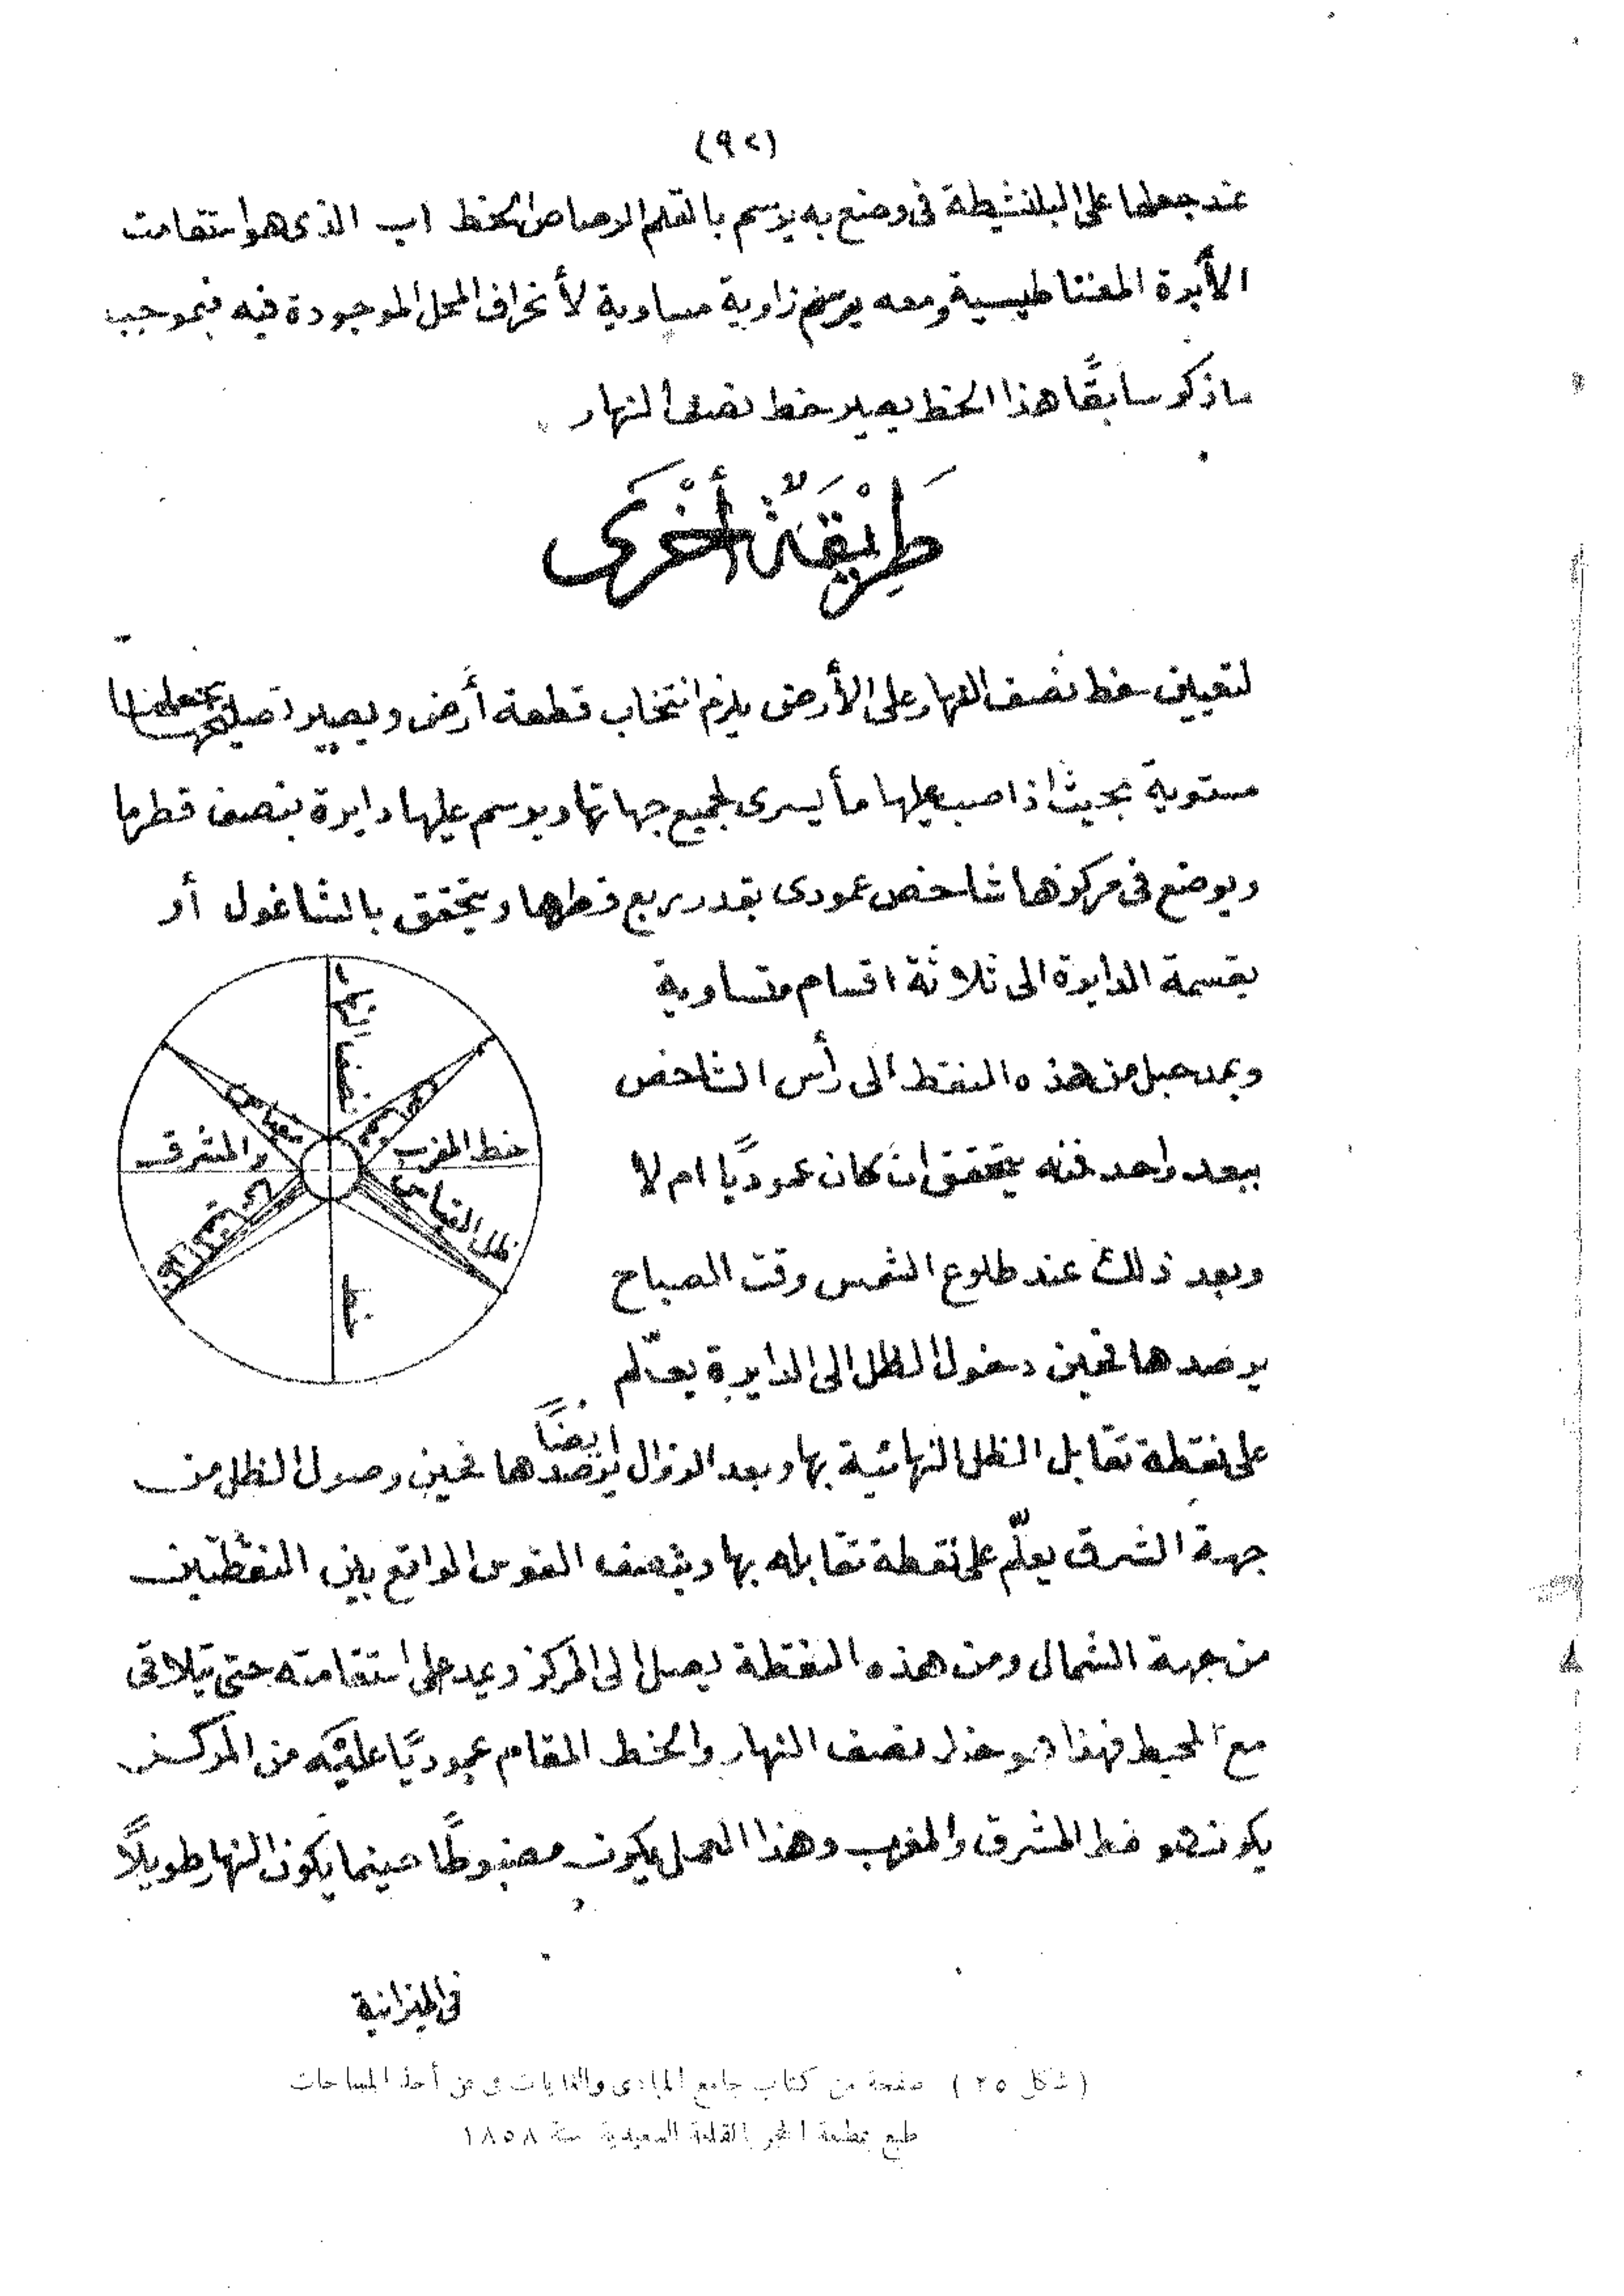 (٩٢)
عند جعلها على البلنشيطة فى وضع به يرسم بالقلم الرصاص الخط اب الذى هو استقامت
الأبرة المغناطيسية ومعه يرسم زاوية مساوية لأنحراف المحل الموجودة فيه فبموجب
ماذكر سابقًا هذا الخط يصير خط نصف النهار
طَرِيْقَةٌ أُخْرَى
لتعيين خط نصف النهار على الأرض يلزم انتخاب قطعة أرض ويصير تصليحها بجعلها
مستوية بحيث اذا صب عليها مأ يسرى لجميع جهاتها ويرسم عليها دايرة بنصف قطرما
ويوضع فى مركزها شاخص عمودى بقدر ربع قطرها ويتحقق بالشاغول أو
بقسمة الدايرة الى ثلاثة اقسام متساوية
ويمد حبل من هذه النقط الى رأس الشاخص
ببعد واحد فنه يتحقق ان كان عموديًا ام لا
وبعد ذلك عند طلوع الشمس وقت الصباح
يرصدها فحين دخول الظل الى الدايرة يعلّم
على نقطة تقابل الظل النهائية بها وبعد الزوال يرصدها ايضًا فحين وصول الظل من
جهة الشرق يعلّم على نقطة تقابله بها وينصف القوس الواقع بين النقطتين
من جهة الشمال ومن هذه النقطة يصل الى المركز ويمد على استقامته حتى يتلاقى
مع المحيط فهذا هو خط نصف النهار والخط المقام عموديًا عليه من المركز
يكون هو خط المشرق والمغرب وهذا العمل يكون مضبوطًا حينما يكون النهار طويلاً
خط المغرب والمشرق
ظل القياس
فى الميزانية
(شكل ٢٥) صفحة من كتاب جامع المبادى والغايات فى فن أخذ المساحات
طبع بمطبعة الحجر بالقلعة السعيدية سنة ١٨٥٨